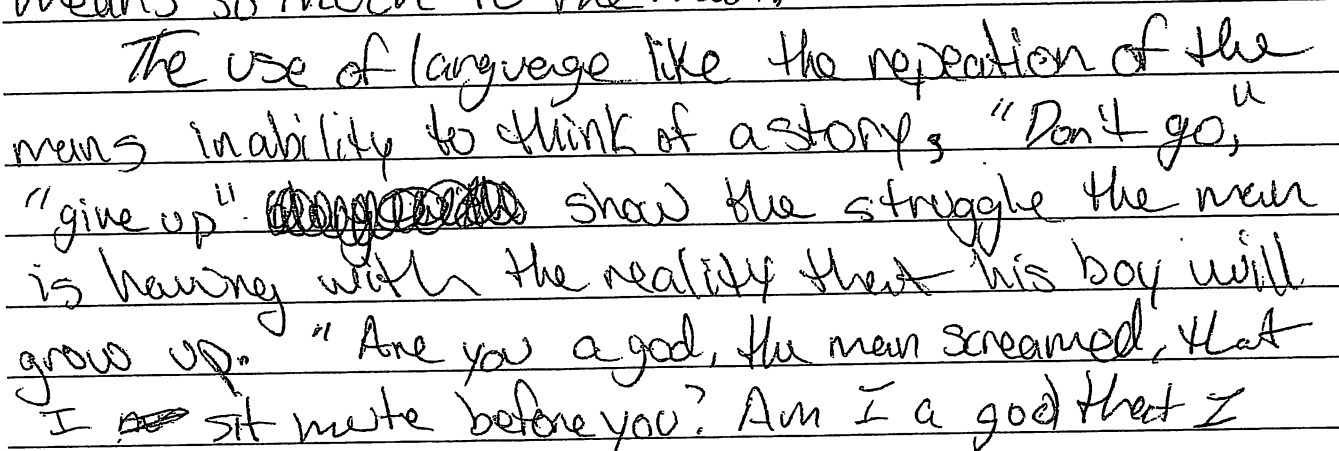 means so much to the man.
The use of language like the repeation of the
mans inability to think of a story, "Don't go,"
"give up" show the struggle the man
is having with the reality that his boy will
grow up. "Are you a god, the man screamed, that
I sit mute before you? Am I a god that I